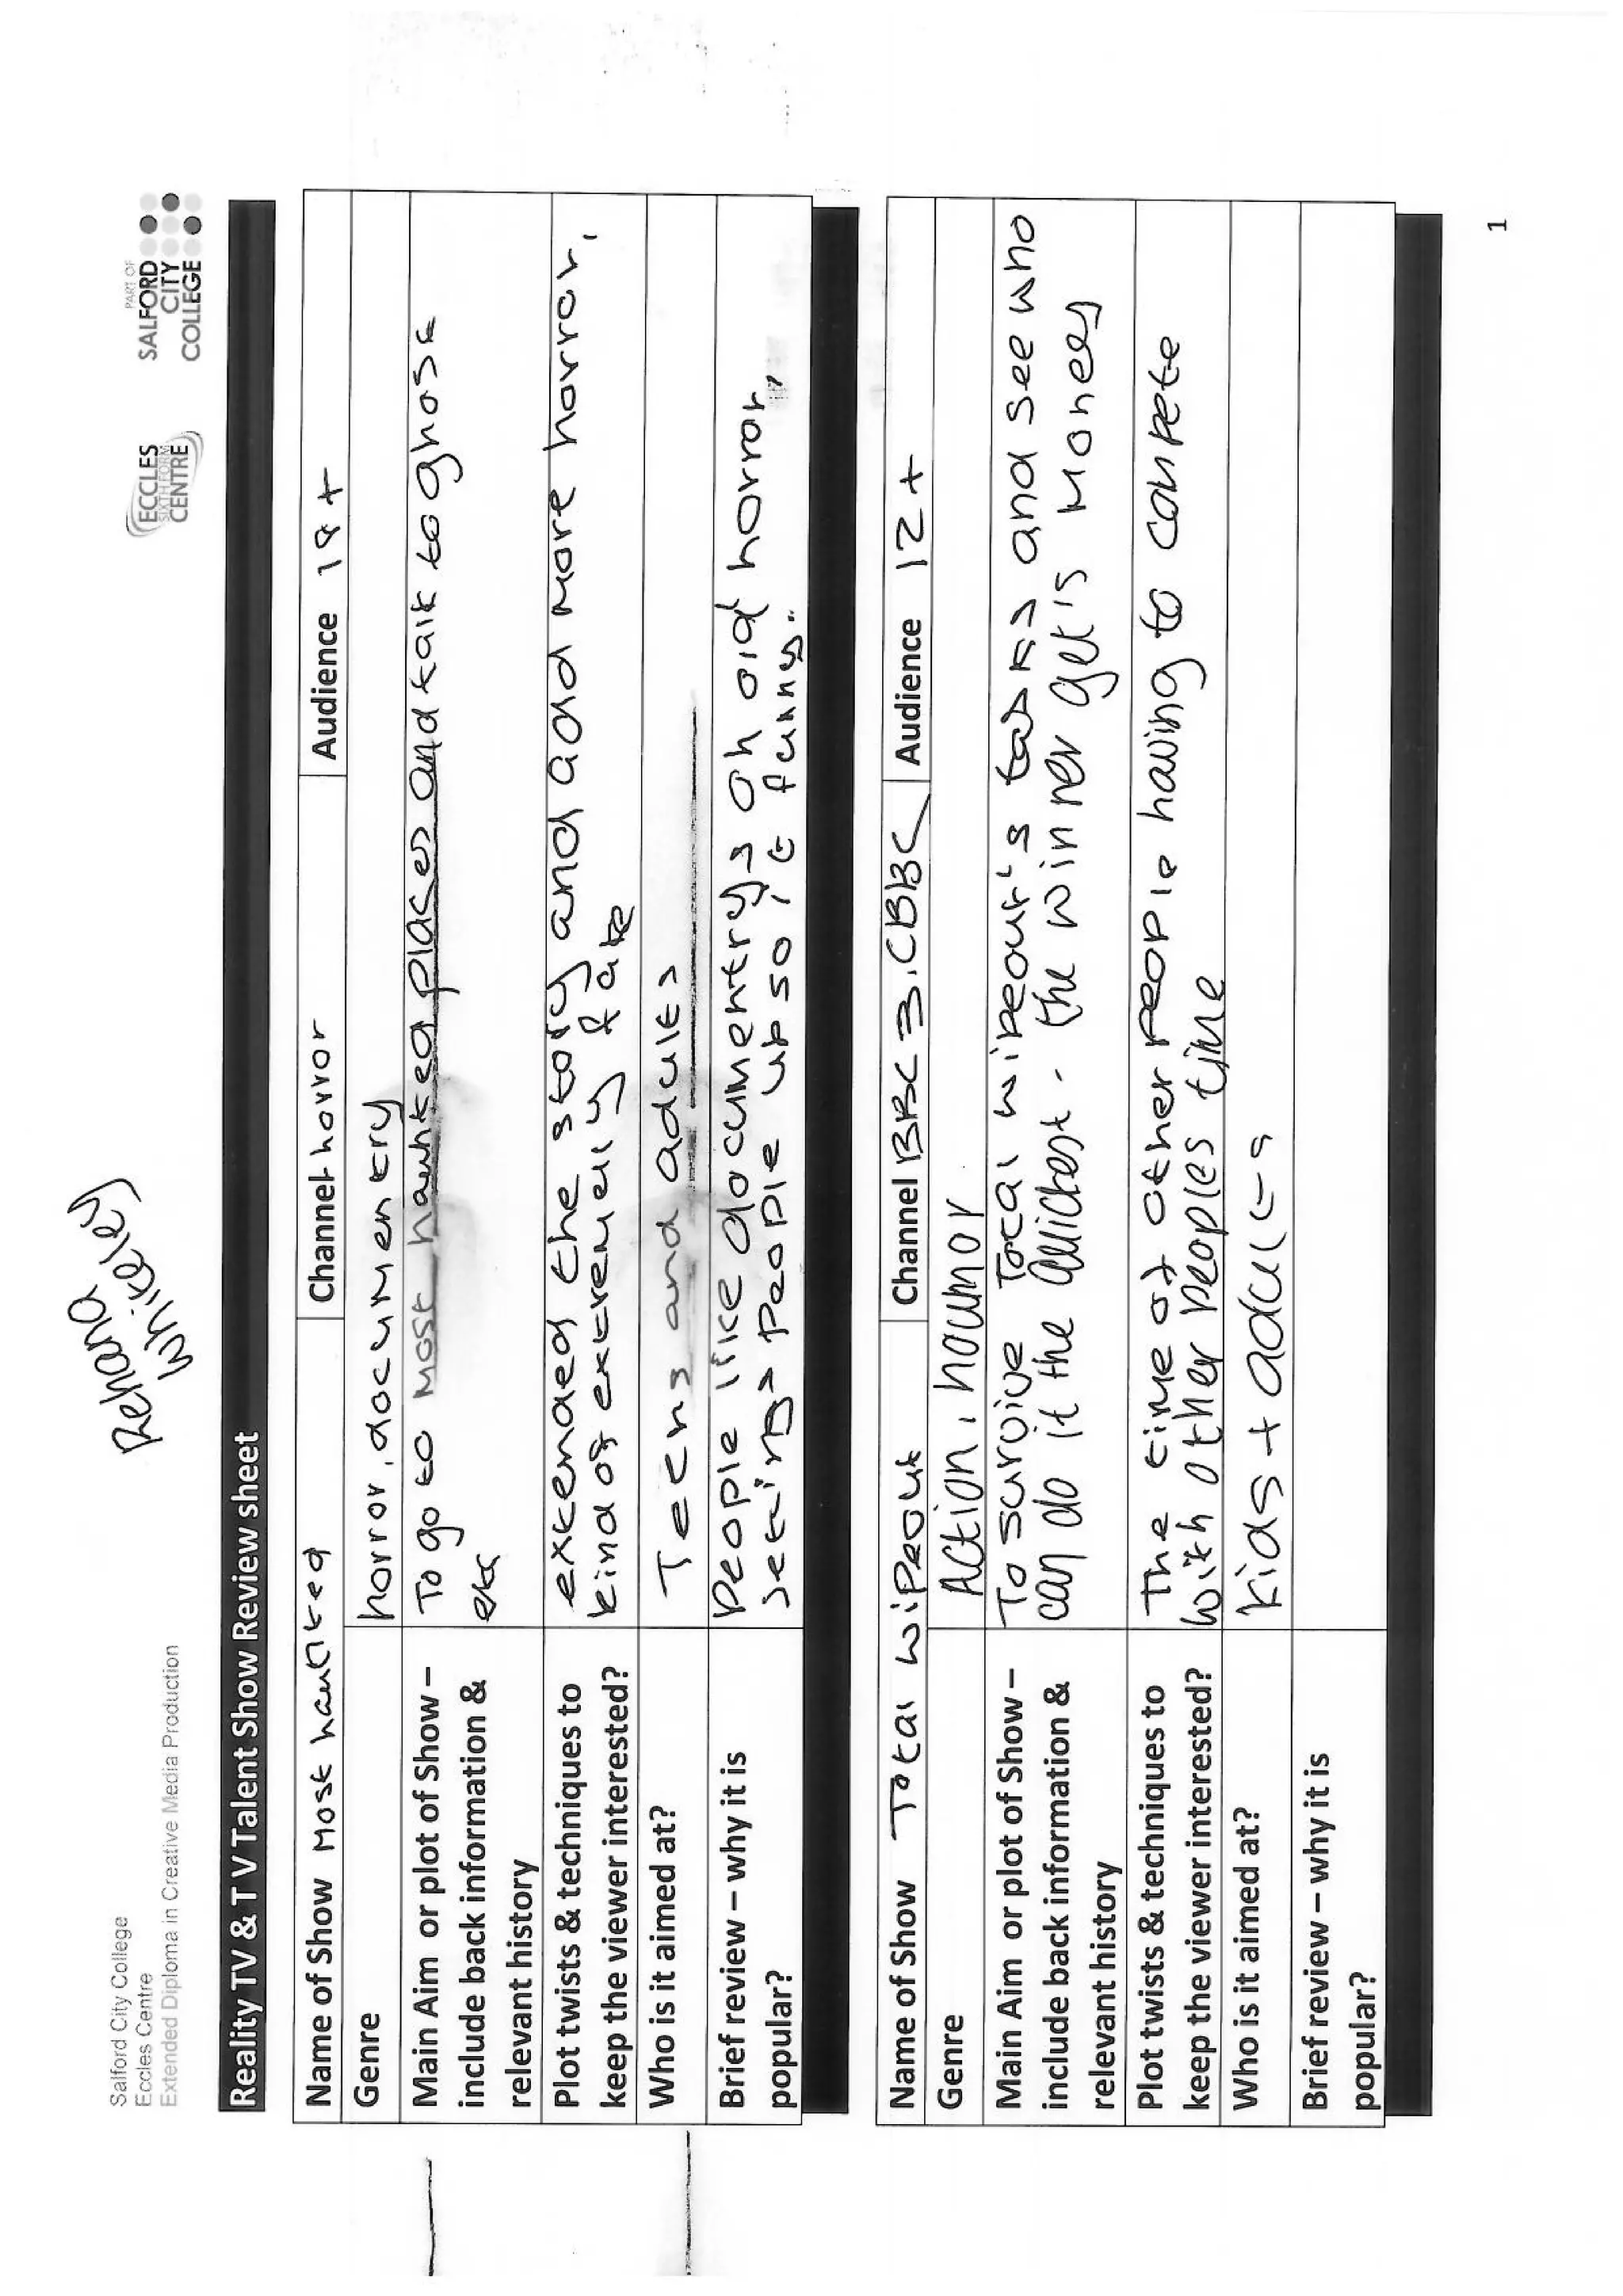 Salford City College
Eccles Centre
Extended Diploma in Creative Media Production
Rehana
Whiteley
ECCLES
SIXTH FORM
CENTRE
PART OF
SALFORD
CITY
COLLEGE
Reality TV & T V Talent Show Review sheet
Name of Show Most haunted Channel horror Audience 18+
Genre horror, documentry
Main Aim or plot of Show –
include back information &
relevant history
To go to most haunted places and talk to ghost
etc
Plot twists & techniques to
keep the viewer interested?
extended the story and add more horror,
kind of extremely fake
Who is it aimed at?
Teens and adults
Brief review – why it is
popular?
People like documentrys on old horror,
setings people up so it funny.
Name of Show Total wipeout Channel BBC 3. CBBC Audience 12+
Genre Action, houmor
Main Aim or plot of Show –
include back information &
relevant history
To survive Total wipeout's tasks and see who
can do it the quickest. the winner get's money
Plot twists & techniques to
keep the viewer interested?
The time of other people having to conpete
with other peoples time
Who is it aimed at?
kids + adults
Brief review – why it is
popular?
1